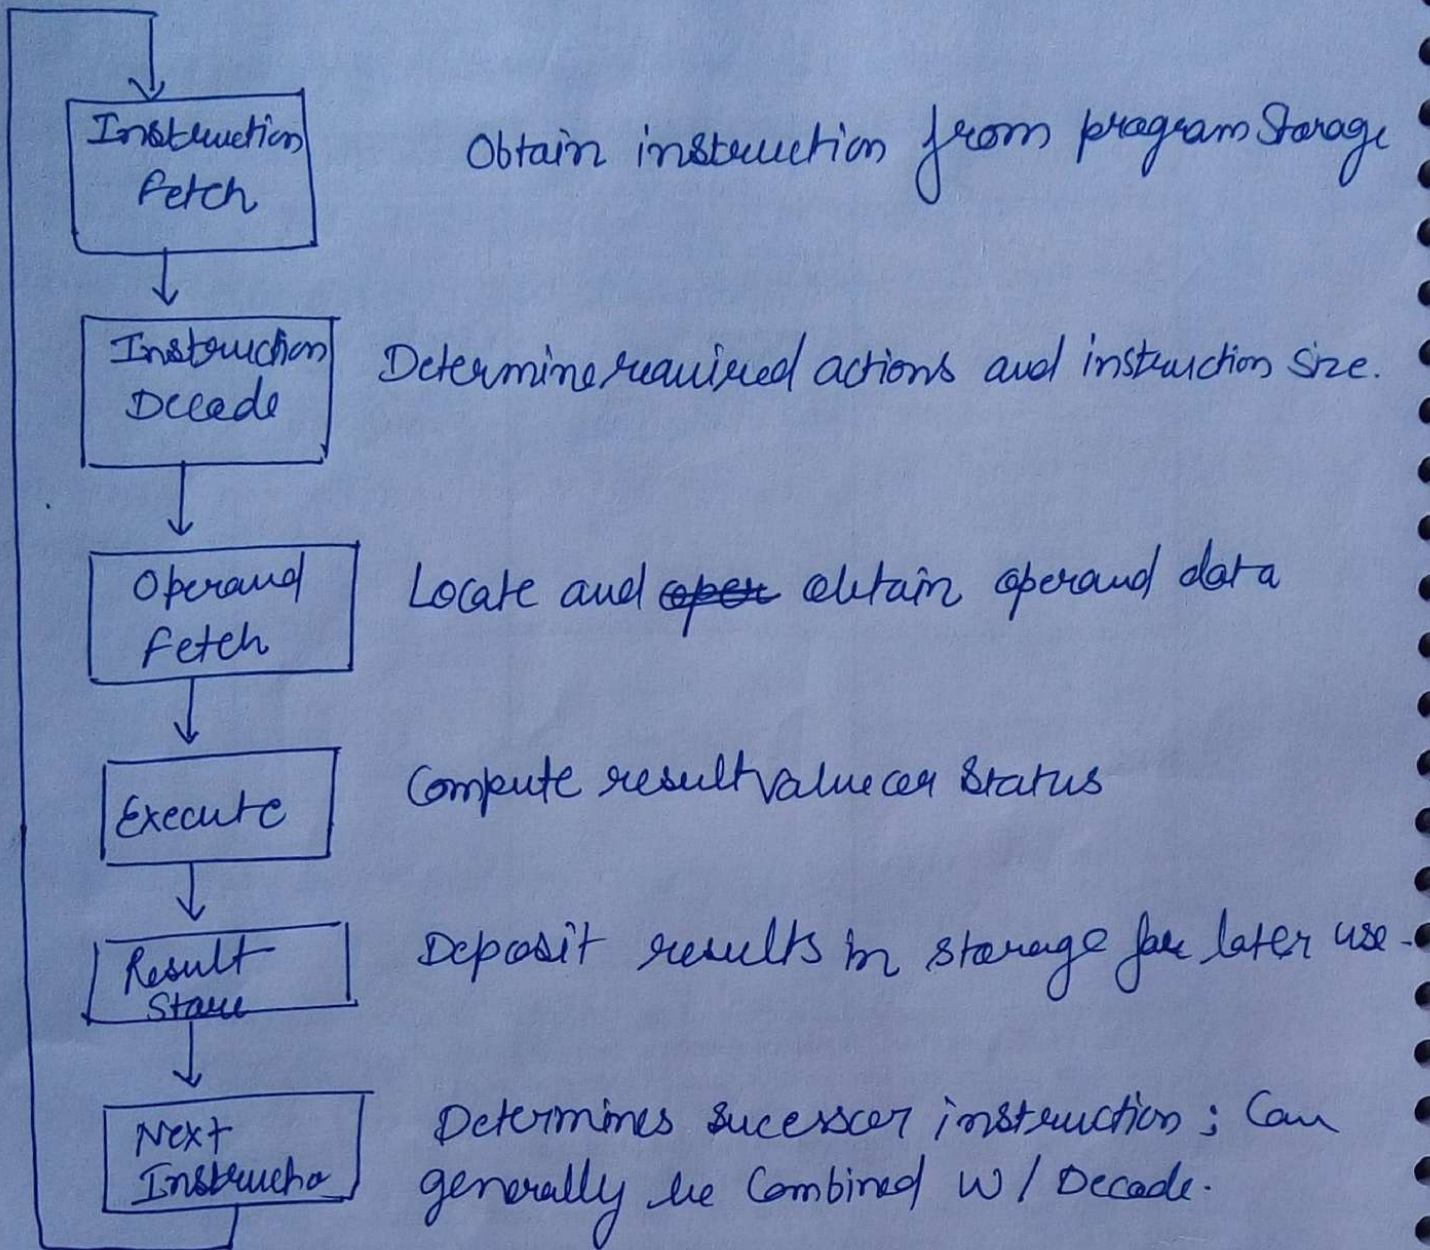 Instruction
Fetch
Obtain instruction from program Storage
Instruction
Decode
Determine required actions and instruction size.
Operand
Fetch
Locate and oper obtain operand data
Execute
Compute result value or Status
Result
Store
Deposit results in storage for later use.
Next
Instructio
Determines sucessor instruction; Can
generally be Combined w/ Decode.